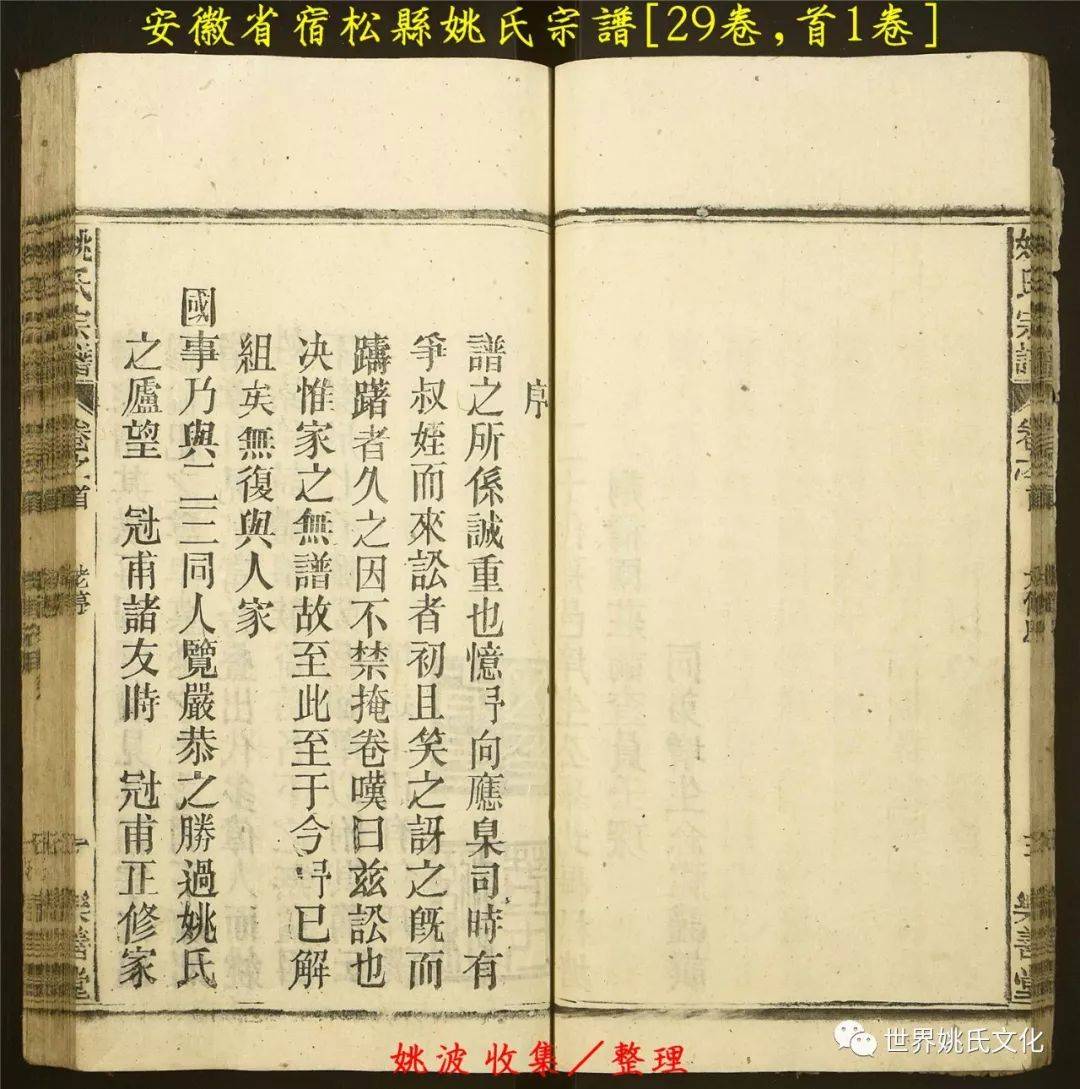 安徽省宿松縣姚氏宗譜[29卷,首1卷]
姚氏宗譜
樂善堂
序
譜之所係誠重也憶予向應臬司時有
爭叔姪而來訟者初且笑之訝之旣而
躊躇者久之因不禁掩卷嘆曰兹訟也
决惟家之無譜故至此至于今予已解
組矣無復與人家
國事乃與二三同人覽嚴恭之勝過姚氏
之廬望　冠甫諸友時　冠甫正修家
姚氏宗譜
卷之首
樂善堂
姚波收集/整理
世界姚氏文化